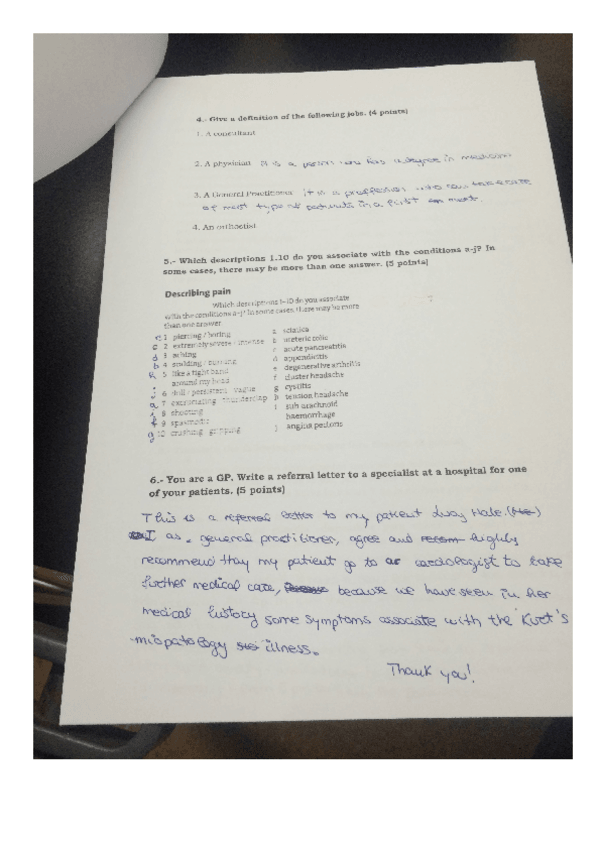 4.- Give a definition of the following jobs. (4 points)
1. A consultant
2. A physician It is a person who has a degree in medicine
3. A General Practitioner it is a proffession who can take care
of most type of patients in a first
4. An orthoptist
5.- Which descriptions 1.10 do you associate with the conditions a-j? In
some cases, there may be more than one answer. (5 points)
Describing pain
Which descriptions 1-10 do you associate
with the conditions a-j? In some cases there may be more
than one answer
1 piercing / boring
2 extremely severe / intense
3 aching
4 scalding / burning
5 like a tight band
around my head
6 dull / persistent / vague
7 excruciating / thunderclap
8 shooting
9 spasmodic
10 crushing / gripping
a sciatica
b ureteric colic
c acute pancreatitis
d appendicitis
e degenerative arthritis
f cluster headache
g cystitis
h tension headache
i sub arachnoid
haemorrhage
j angina pectoris
6.- You are a GP. Write a referral letter to a specialist at a hospital for one
of your patients. (5 points)
This is a referral letter to my patient Lucy Hale. (He)
I as a general practitioner, agree and recom highly
recommend that my patient go to a cardiologist to take
further medical care, because we have seen in her
medical history some symptoms associate with the
illness.
Thank you!